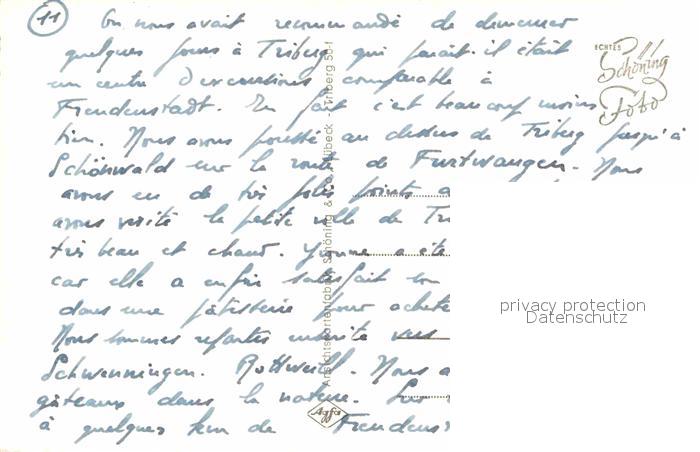 11
On nous avait recommandé de demeurer
quelques jours à Triberg qui paraît-il était
un centre d'excursions comparable à
Freudenstadt. En fait c'est beaucoup moins
bien. Nous avons poussé au dessus de Triberg jusqu'à
Schönwald sur la route de Furtwangen - Nous
avons eu de très jolis points
avons visité la petite ville de
très beau et chaud. Yvonne a été
car elle a enfin satisfait
dans une pâtisserie pour
Nous sommes repartis ensuite vers
Schwenningen. Rottweil - Nous
gâteaux dans la nature.
à quelques km de
ECHTES
Schöning
Foto
Ansichtskartenfabrik Schöning & Co., Lübeck - Triberg 50
Agfa
privacy protection
Datenschutz